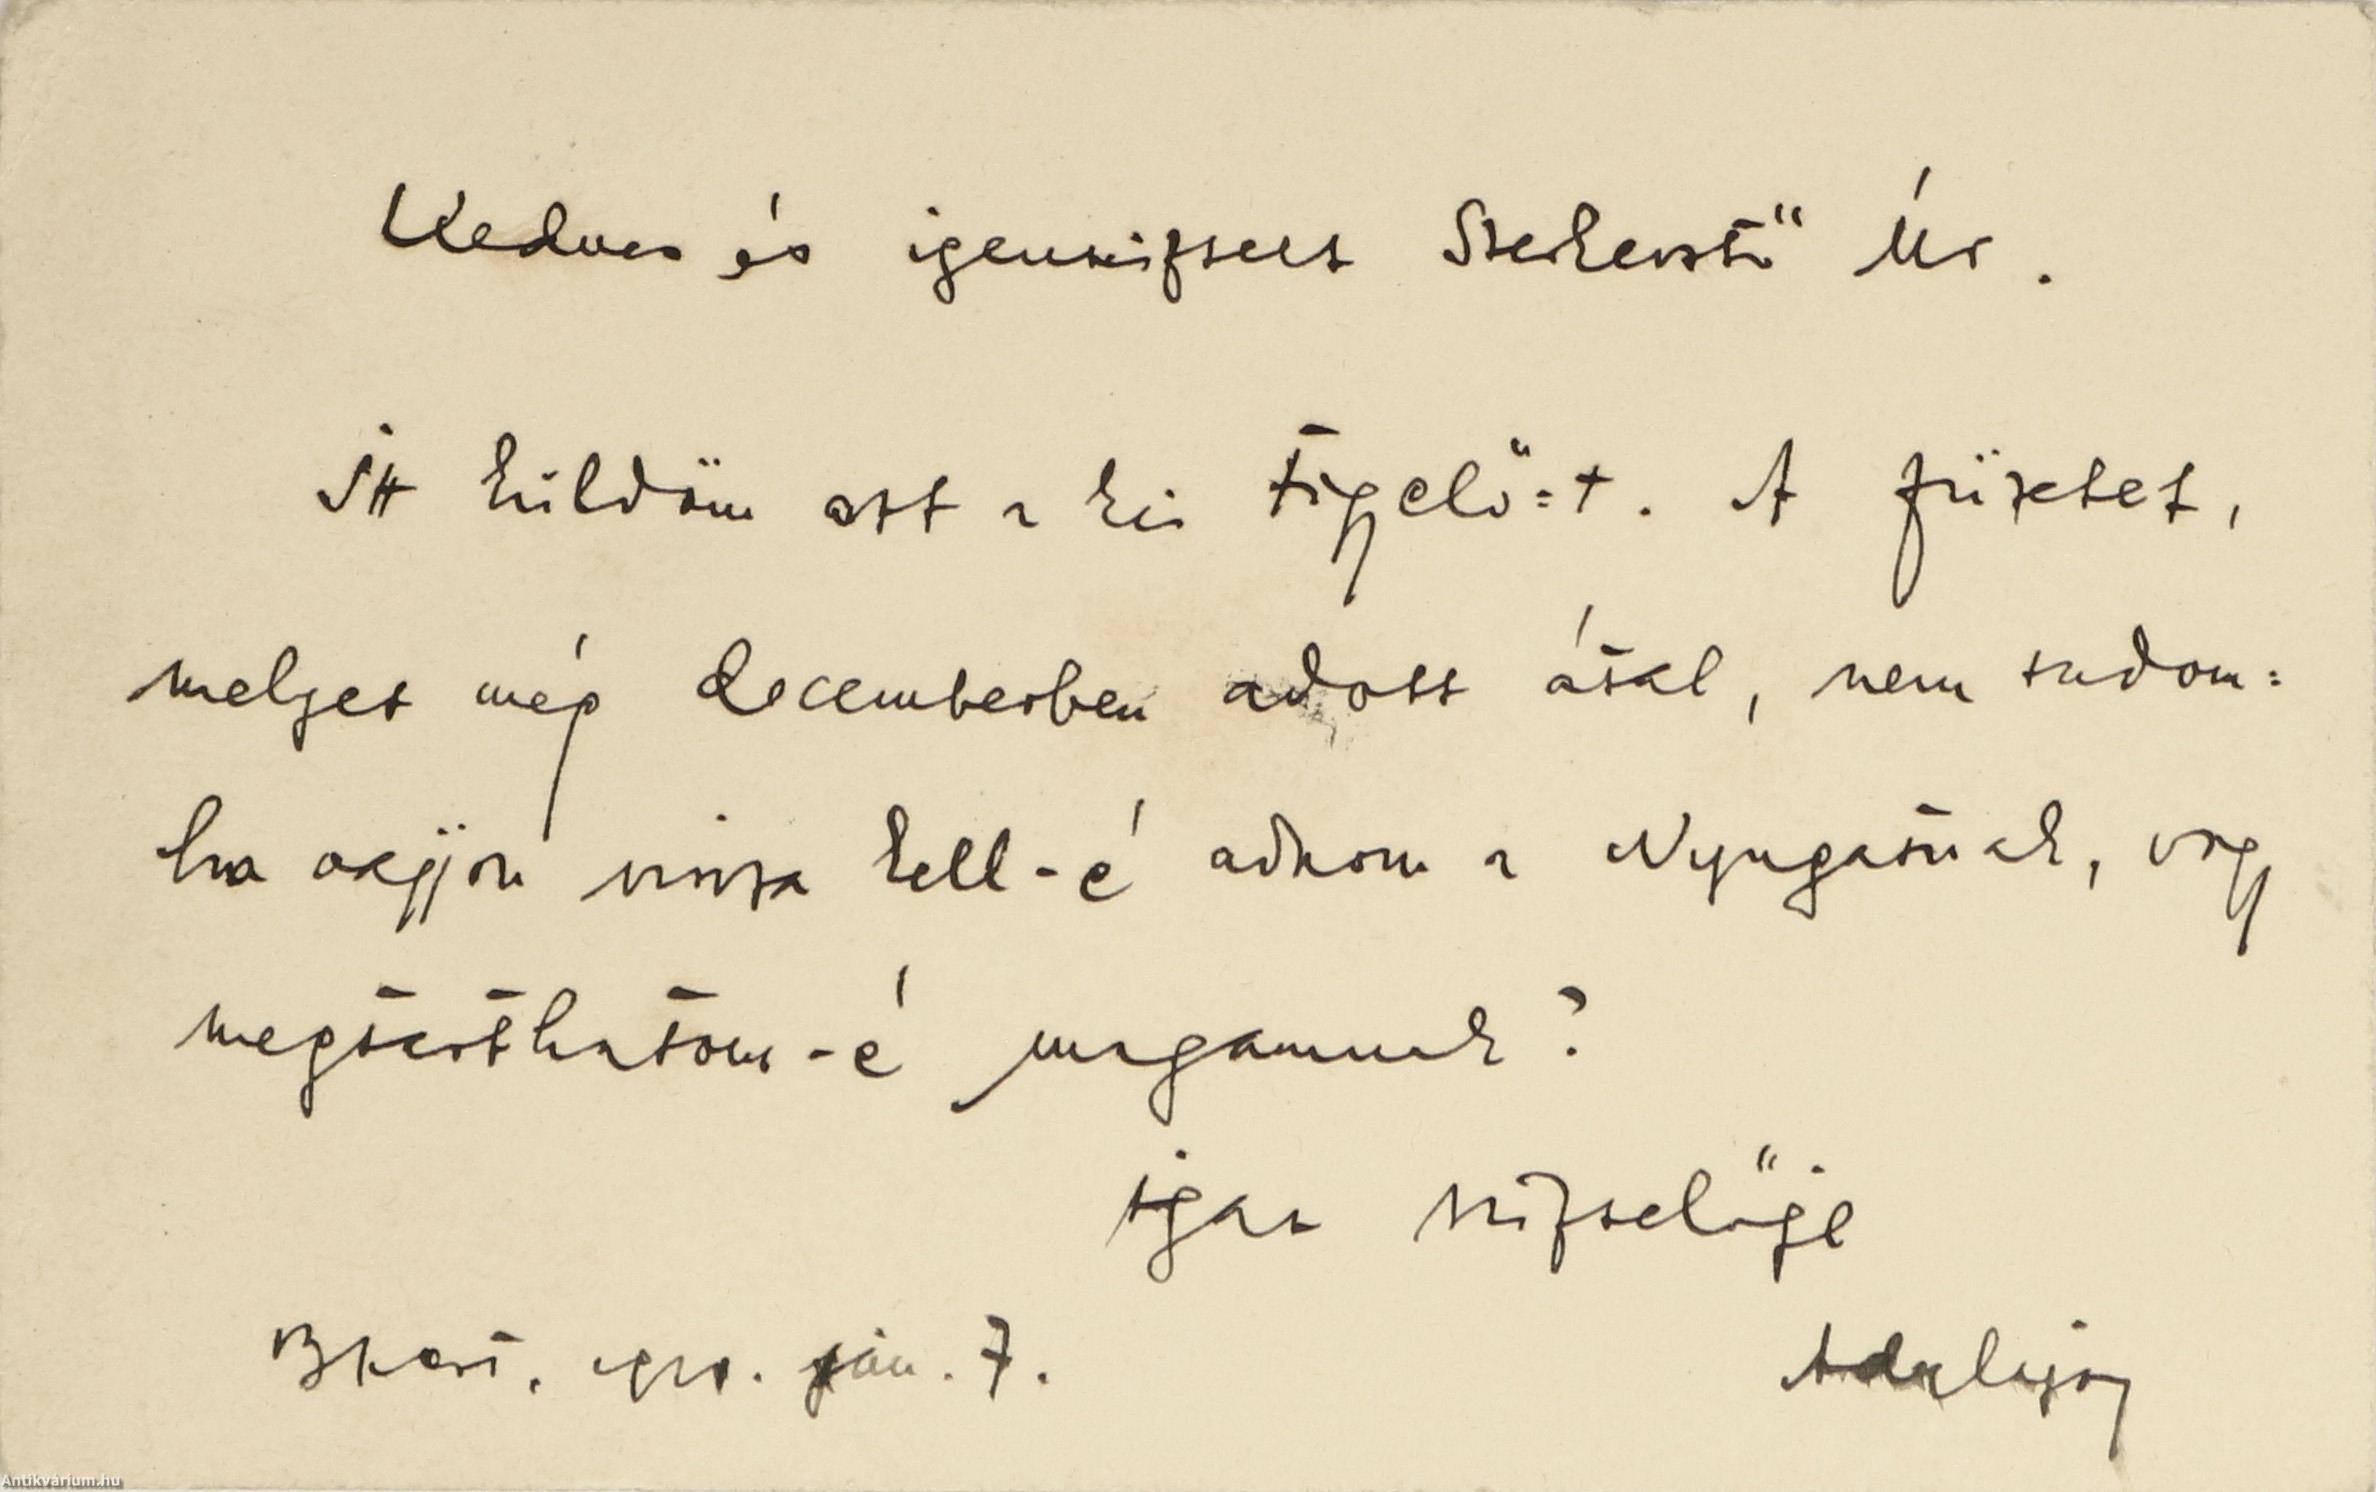 Kedves és igen tisztelt Szerkesztő Úr.
Itt küldöm azt a kis Figyelő=t. A füzetet,
melyet még decemberben adott által, nem tudom:
ha vissza kell-é adnom a Nyugatnak, vagy
megtarthatom-é magamnak?
igaz tisztelője
jan. 7.
Antikvárium.hu